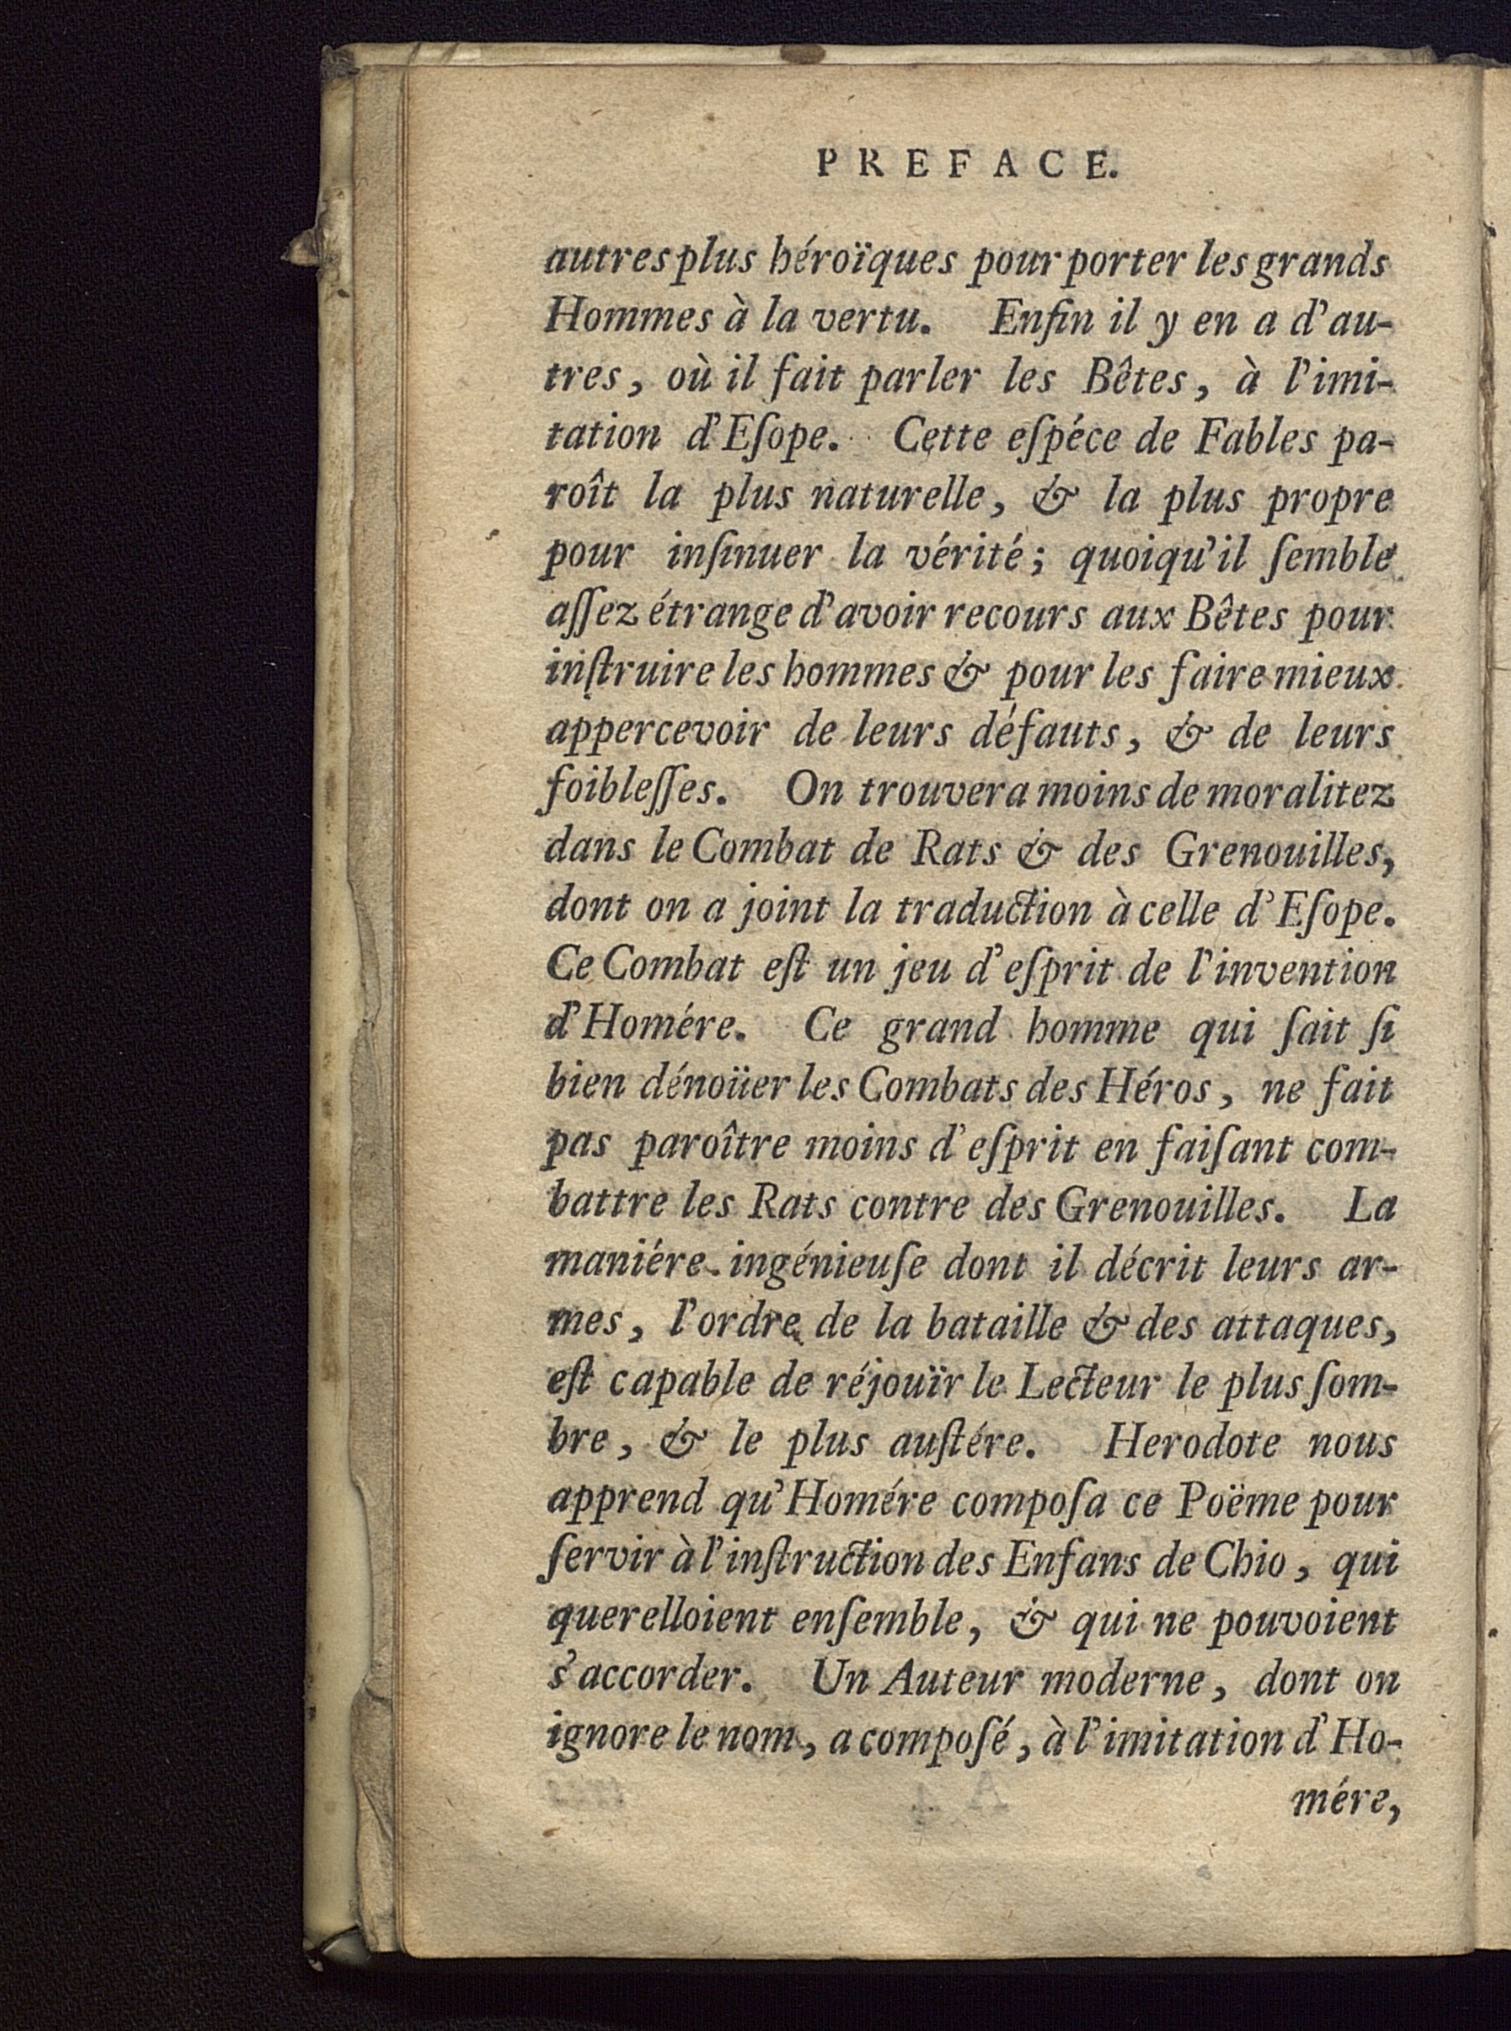 PREFACE.
autres plus héroïques pour porter les grands
Hommes à la vertu. Enfin il y en a d'au-
tres, où il fait parler les Bêtes, à l'imi-
tation d'Eſope. Cette eſpéce de Fables pa-
roît la plus naturelle, & la plus propre
pour inſinuer la vérité; quoiqu'il ſemble
aſſez étrange d'avoir recours aux Bêtes pour
inſtruire les hommes & pour les faire mieux
appercevoir de leurs défauts, & de leurs
foibleſſes. On trouvera moins de moralitez
dans le Combat de Rats & des Grenouilles,
dont on a joint la traduction à celle d'Eſope.
Ce Combat eſt un jeu d'eſprit de l'invention
d'Homére. Ce grand homme qui ſait ſi
bien dénoüer les Combats des Héros, ne fait
pas paroître moins d'eſprit en faiſant com-
battre les Rats contre des Grenouilles. La
maniére ingénieuſe dont il décrit leurs ar-
mes, l'ordre de la bataille & des attaques,
eſt capable de réjouïr le Lecteur le plus ſom-
bre, & le plus auſtére. Herodote nous
apprend qu'Homére compoſa ce Poëme pour
ſervir à l'inſtruction des Enfans de Chio, qui
querelloient enſemble, & qui ne pouvoient
s'accorder. Un Auteur moderne, dont on
ignore le nom, a compoſé, à l'imitation d'Ho-
mére,